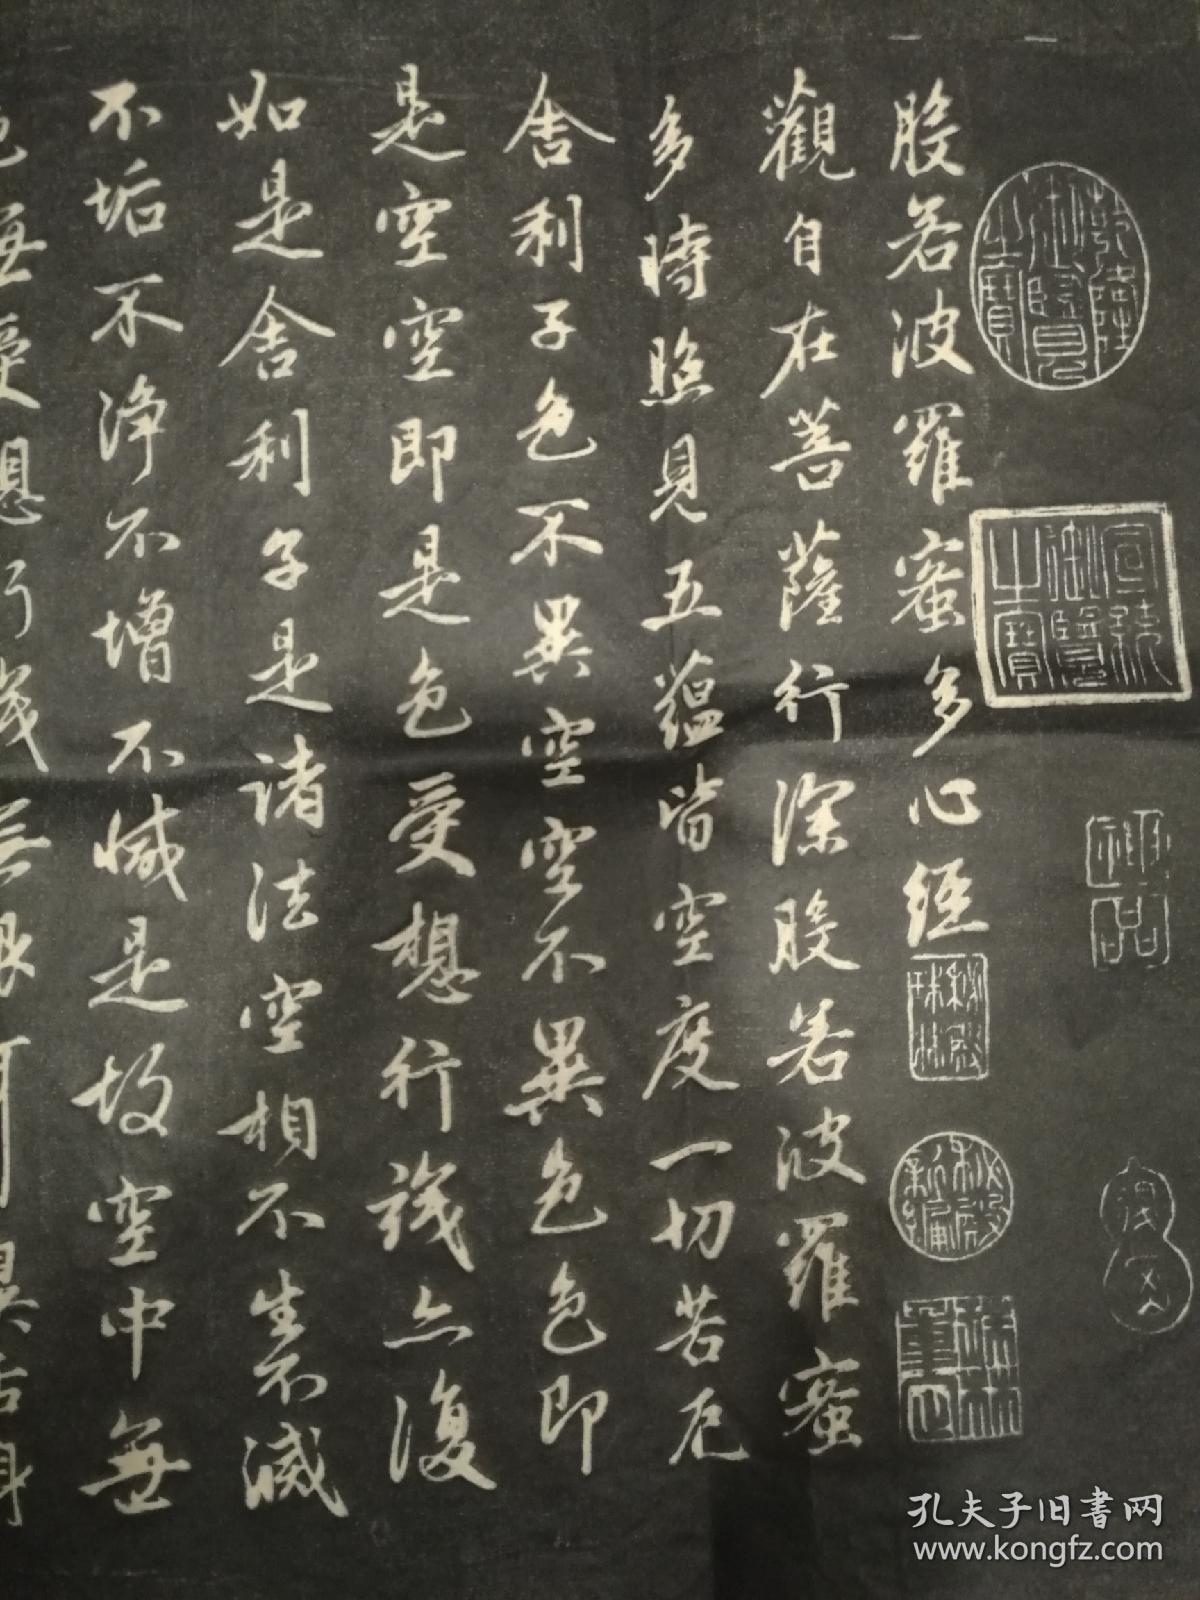 乾隆御覽之寶
宣統御覽之寶
神品
般若波羅蜜多心經
觀自在菩薩行深般若波羅蜜
多時照見五蘊皆空度一切苦厄
舍利子色不異空空不異色色即
是空空即是色受想行識亦復
如是舍利子是諸法空相不生不滅
不垢不淨不增不減是故空中無
色無受想行識無眼耳鼻舌身
孔夫子旧书网
www.kongfz.com